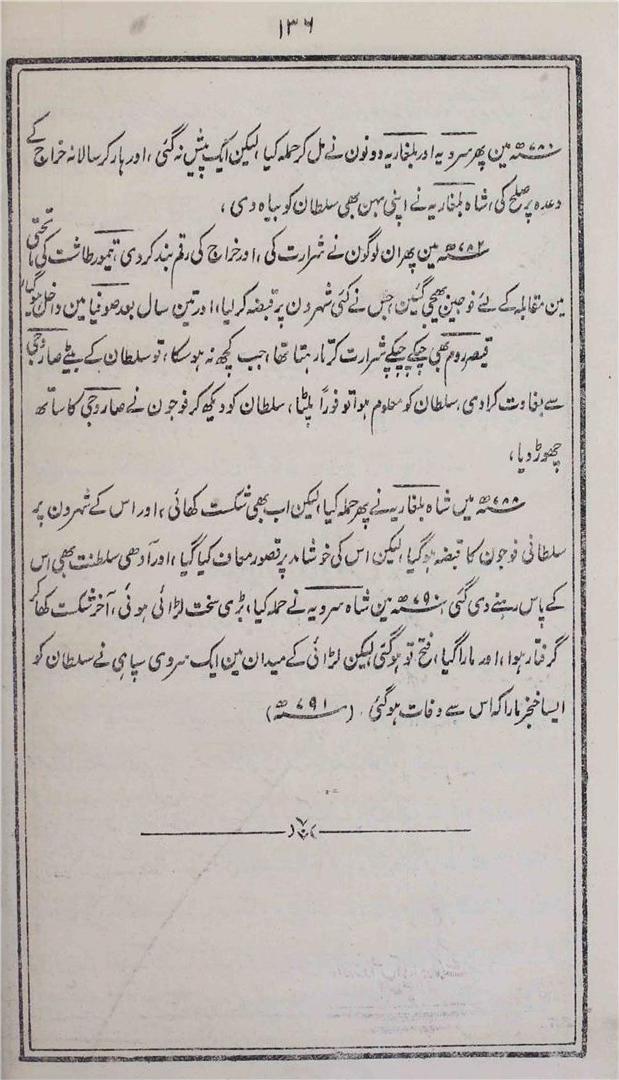 ۱۳۶
۷۸۰ھ مین پھر سرویہ اور بلغاریہ دونون نے مل کر حملہ کیا، لیکن ایک پیش نہ گئی، اور ہار کر سالانہ خراج کے
وعدہ پر صلح کی، شاہ بلغاریہ نے اپنی بہن بھی سلطان کو بیاہ دی،
۷۸۲ھ مین پھر ان لوگون نے شرارت کی، اور خراج کی رقم بند کر دی، تیمور طاشت کی ماتحتی
مین مقابلہ کے لئے فوجین بھیجی گئین، جس نے کئی شہرون پر قبضہ کر لیا، اور تین سال بعد صوفیا مین داخل ہو گیا،
قیصر روم بھی چپکے چپکے شرارت کرتا رہتا تھا، جب کچھ نہ ہو سکا، تو سلطان کے بیٹے صاروجی
سے بغاوت کرا دی، سلطان کو معلوم ہوا تو فوراً پلٹا، سلطان کو دیکھ کر فوجون نے صاروجی کا ساتھ
چھوڑ دیا،
۷۸۸ھ میں شاہ بلغاریہ نے پھر حملہ کیا، لیکن اب بھی شکست کھائی، اور اس کے شہرون پر
سلطانی فوجون کا قبضہ ہو گیا، لیکن اس کی خوشامد پر قصور معاف کیا گیا، اور آدھی سلطنت بھی اس
کے پاس رہنے دی گئی، ۷۹۰ھ مین شاہ سرویہ نے حملہ کیا، بڑی سخت لڑائی ہوئی، آخر شکست کھا کر
گرفتار ہوا، اور مارا گیا، فتح تو ہو گئی لیکن لڑائی کے میدان مین ایک سروی سپاہی نے سلطان کو
ایسا خنجر مارا کہ اس سے وفات ہو گئی، (۷۹۱ھ)